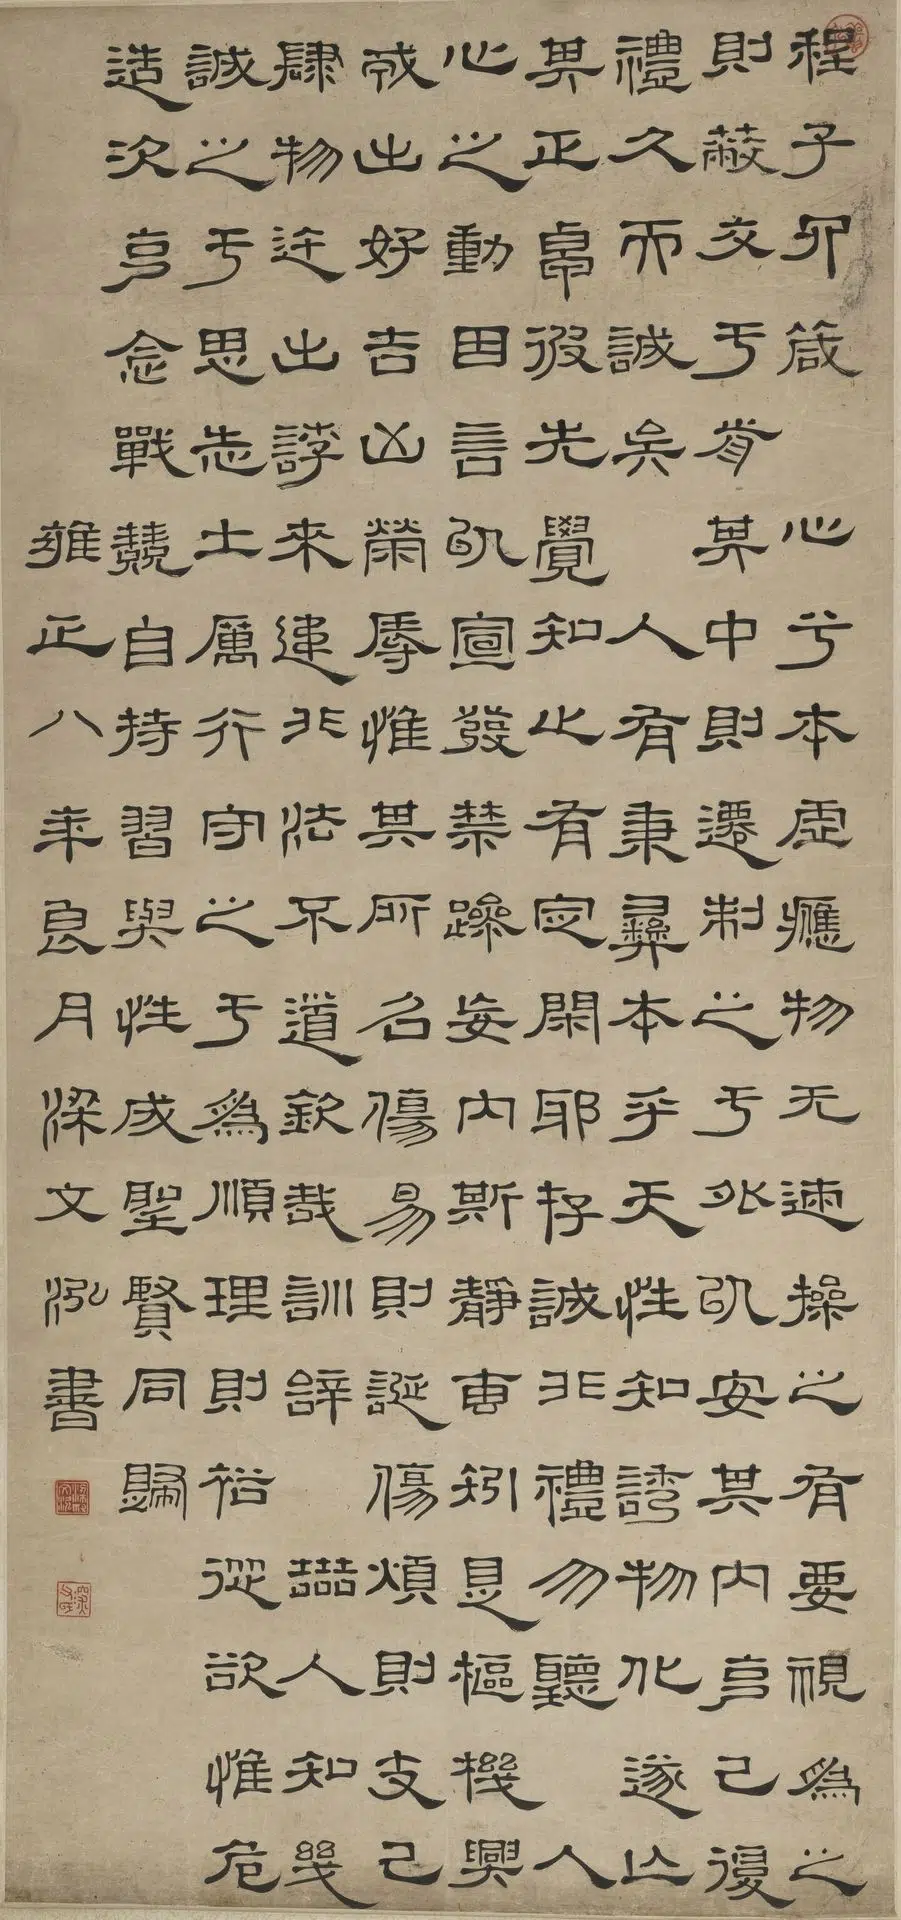 程子四箴 心兮本虛應物无迹操之有要視為之
則蔽交于前其中則遷制之于外以安其內克己復
禮久而誠矣 人有秉彝本乎天性知誘物化遂亡
其正卓彼先覺知止有定閑耶存誠非禮勿聽 人
心之動因言以宣發禁躁妄內斯靜專矧是樞機興
戎出好吉凶榮辱惟其所召傷易則誕傷煩則支己
肆物迕出誖來違非法不道欽哉訓辭 嚞人知幾
誠之于思志士厲行守之于為順理則裕從欲惟危
造次克念戰兢自持習與性成聖賢同歸
雍正八年良月梁文泓書